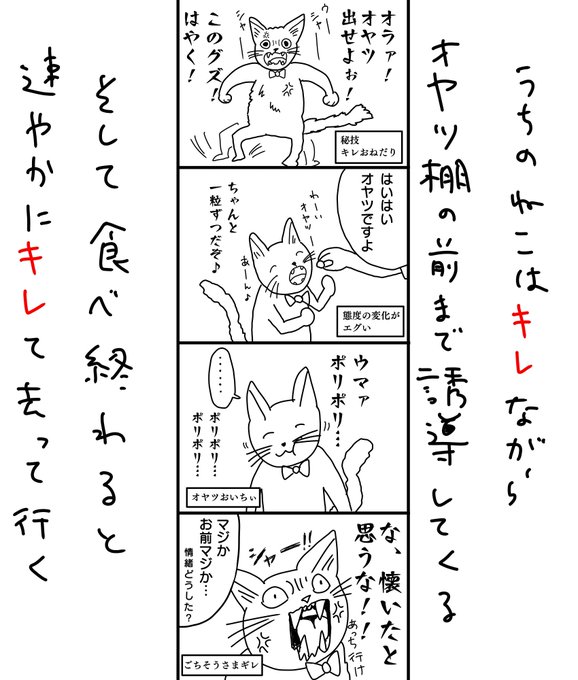 うちのねこはキレながら
オヤツ棚の前まで誘導してくる
オラァ！
オヤツ
出せよぉ！
このグズ！
はやく！
ウャー
シャー
シャー
秘技
キレおねだり
はいはい
オヤツですよ
わーい
オヤツー
ちゃんと
一粒ずつだぞ♪
あーん♪
態度の変化が
エグい
ウマァ
ポリポリ…
……
ポリポリ…
ポリポリ…
オヤツおいちぃ
な、懐いたと
思うな！！
あっち行け
シャー!!
マジか
お前マジか…
情緒どうした？
ごちそうさまギレ
そして食べ終わると
速やかにキレて去って行く